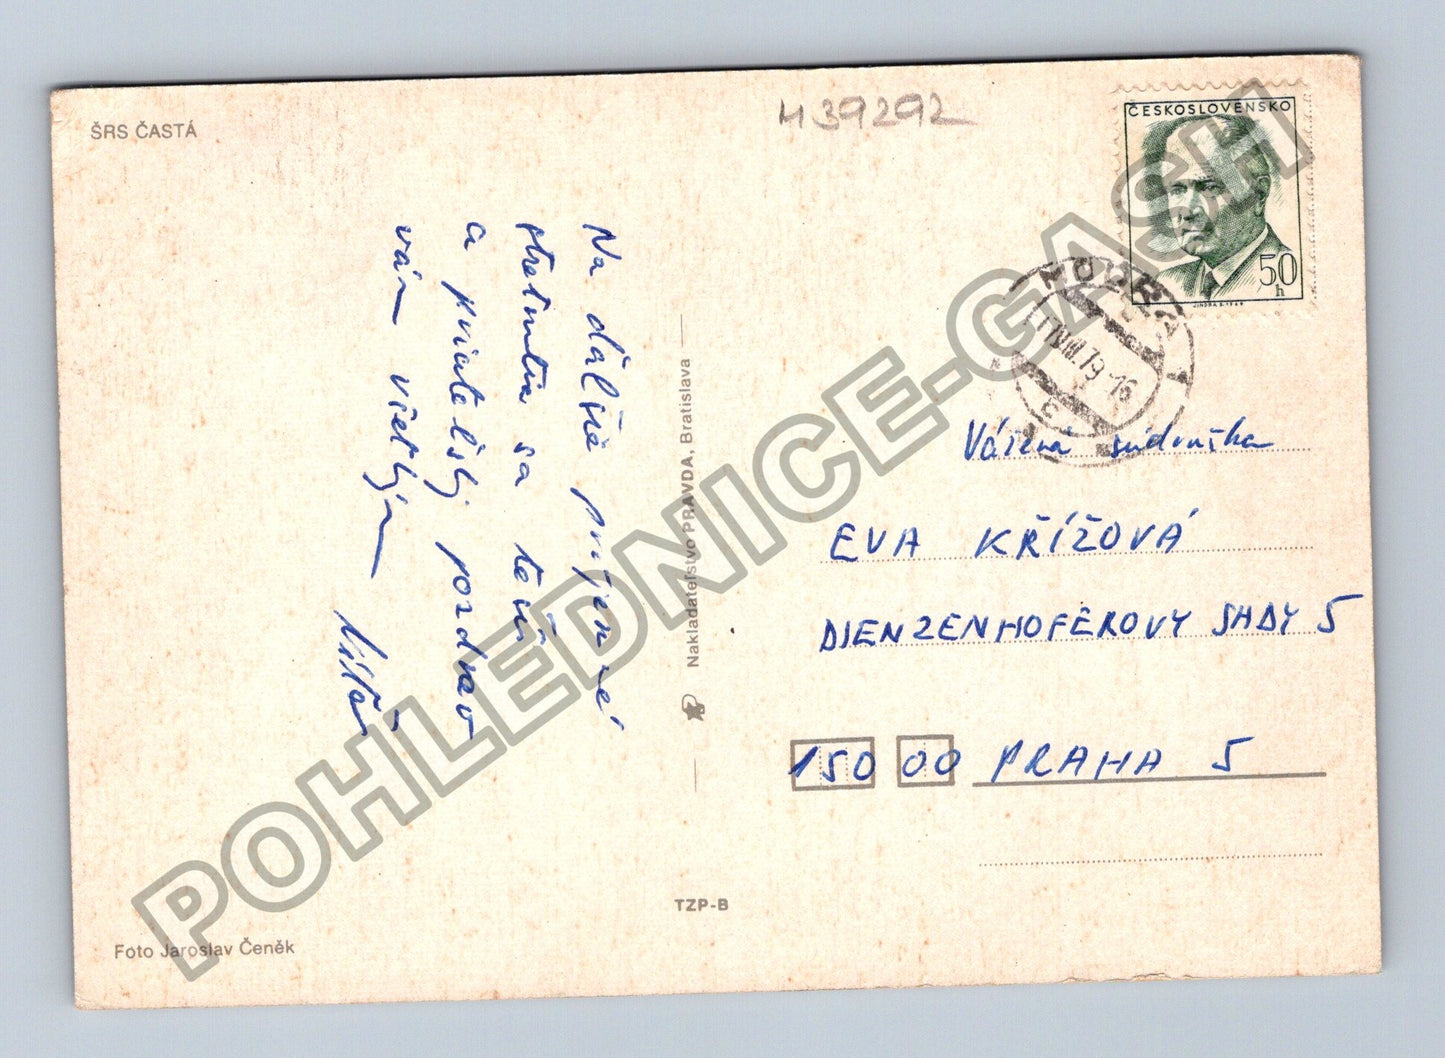 ŠRS ČASTÁ
H39292
ČESKOSLOVENSKO
50
h
JINDRA S. 1969
17.VIII.79-16
E
Na ďalšie príjemné
stretnutia sa teší
a priateľský pozdrav
vám všetkým
Nakladateľstvo PRAVDA, Bratislava
Vážená súdružka
EVA KŘÍŽOVÁ
DIENZENHOFEROVY SADY 5
150 00 PRAHA 5
TZP-B
Foto Jaroslav Čeněk
POHLEDNICE-GASH